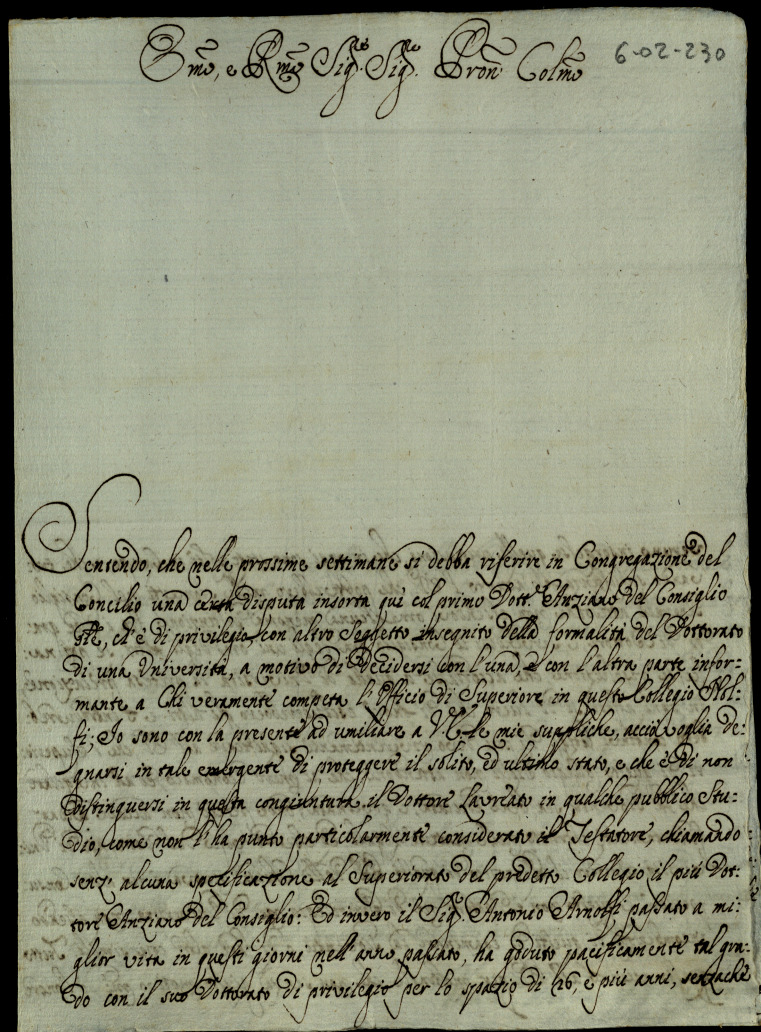 Emo, e Rmo Sig.re Sig.re Pron Colmo
6-02-230
Sentendo, che nelle prossime settimane si debba riferire in Congregazione del
Concilio una certa disputa insorta qui col primo Dott.e Anziano del Consiglio
ch'è di privilegio, con altro Soggetto insegnito della formalità del Dottorato
di una Università, a motivo di decidersi con l'una, e con l'altra parte infor-
mante a Chi veramente competa l'Officio di Superiore in questo Collegio Nol-
fi; Io sono con la presente ad umiliare a V. E. le mie suppliche, acciò voglia de-
gnarsi in tale emergente di proteggere il solito, ed ultimo stato, e che è di non
distinguersi in questa congiuntura il Dottore Laureato in qualche pubblico Stu-
dio, come non l'ha punto particolarmente considerato il Testatore, chiamando
senz' alcuna specificazione al Superiorato del predetto Collegio il più Dot-
tore Anziano del Consiglio: Ed invero il Sig.r Antonio Arnolfi passato a mi-
glior vita in questi giorni nell' anno passato, ha goduto pacificamente tal gra-
do con il suo Dottorato di privilegio per lo spazio di 26, e più anni, senzache